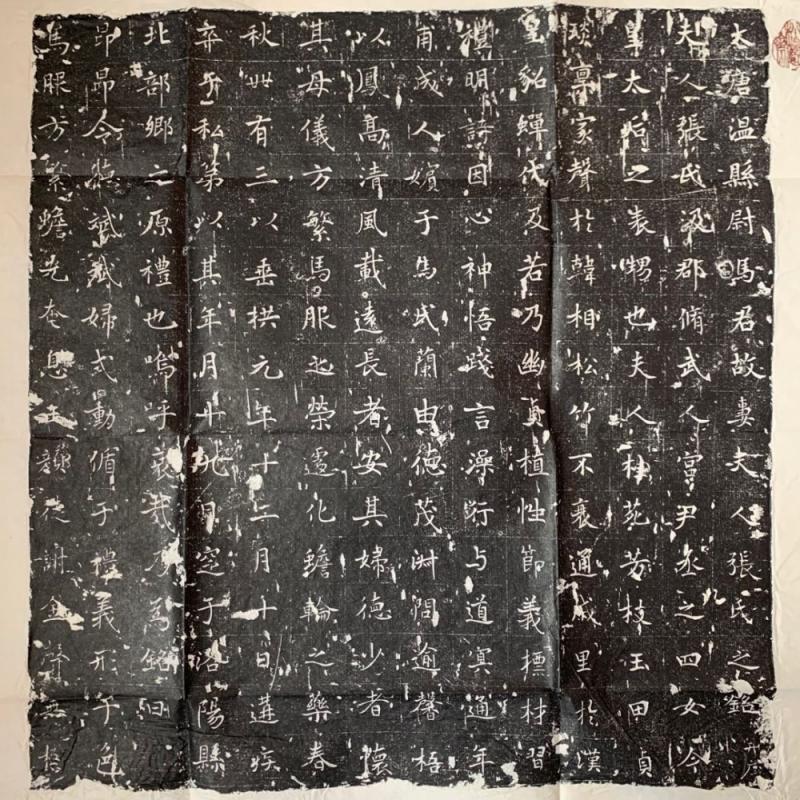 大唐温縣尉馮君故妻夫人張氏之銘
夫人張氏汲郡脩武人宫尹丞之四女今
皇太后之表甥也夫人神苑芳枝玉田貞
琰禀家聲於韓相松竹不衰通戚里於漢
皇貂蟬代及若乃幽貞植性節義摽材習
禮明詩因心神悟踐言澡行与道冥通年
甫成人嬪于馮氏蘭由德茂淋問逾馨梧
以鳳高清風載遠長者安其婦德少者懷
其母儀方繁馬服之榮遽化蟾輪之藥春
秋卅有三以垂拱元年十二月十日遘疾
卒于私第以其年月十九日窆于洛陽縣
北部鄉之原禮也嗚呼哀哉乃爲銘曰
昂昂令 婦式動循子禮義形乎色
馬服方繁蟾先 息 從謝金